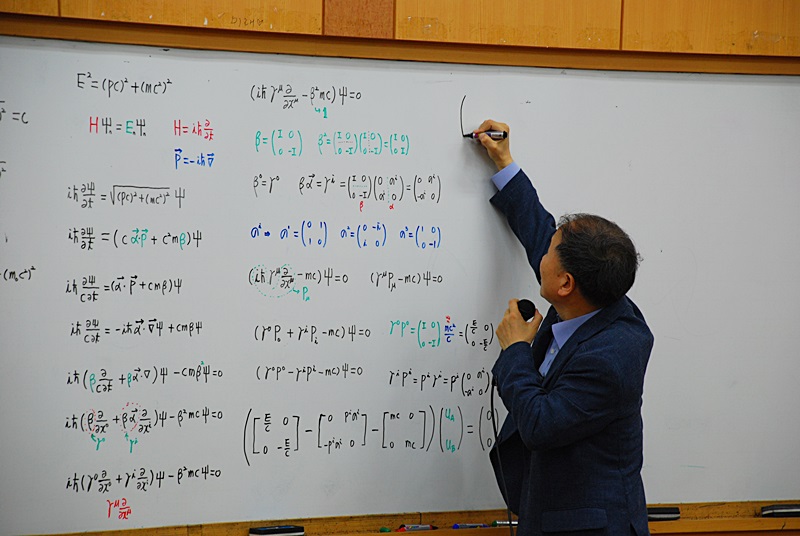 E² = (pc)² + (mc²)²
HΨₙ = EₙΨₙ H = iħ ∂/∂t
p⃗ = -iħ∇⃗
iħ ∂Ψ/∂t = √((pc)² + (mc²)²) Ψ
iħ ∂Ψ/∂t = (c α⃗·p⃗ + c²mβ)Ψ
iħ ∂Ψ/c∂t = (α⃗·p⃗ + cmβ)Ψ
iħ ∂Ψ/c∂t = -iħ α⃗·∇⃗Ψ + cmβΨ
iħ(β ∂/c∂t + βα⃗·∇)Ψ - cmβ²Ψ = 0
iħ(β ∂/∂x⁰ + βα⃗ ∂/∂xⁱ)Ψ - β²mcΨ = 0
γ⁰ γⁱ
iħ(γ⁰ ∂/∂x⁰ + γⁱ ∂/∂xⁱ)Ψ - β²mcΨ = 0
γ^μ ∂/∂x^μ
(iħ γ^μ ∂/∂x^μ - β²mc)Ψ = 0
↳1
β = (I 0; 0 -I) β² = (I 0; 0 -I)(I 0; 0 -I) = (I 0; 0 I)
β⁰ = γ⁰ βα⃗ = γⁱ = (I 0; 0 -I)(0 σⁱ; σⁱ 0) = (0 σⁱ; -σⁱ 0)
β α
σⁱ ⇒ σ¹ = (0 1; 1 0) σ² = (0 -i; i 0) σ³ = (1 0; 0 -1)
(iħ γ^μ ∂/∂x^μ - mc)Ψ = 0 (γ^μ P_μ - mc)Ψ = 0
↳P_μ
(γ⁰P₀ + γⁱPᵢ - mc)Ψ = 0 γ⁰p⁰ = (I 0; 0 -I) mc²/c = (E/c 0; 0 -E/c)
(γ⁰p⁰ - γⁱpⁱ - mc)Ψ = 0 γⁱpⁱ = pⁱγⁱ = pⁱ(0 σⁱ; -σⁱ 0)
([E/c 0; 0 -E/c] - [0 pⁱσⁱ; -pⁱσⁱ 0] - [mc 0; 0 mc])(u_A; u_B) = (0; 0)
(